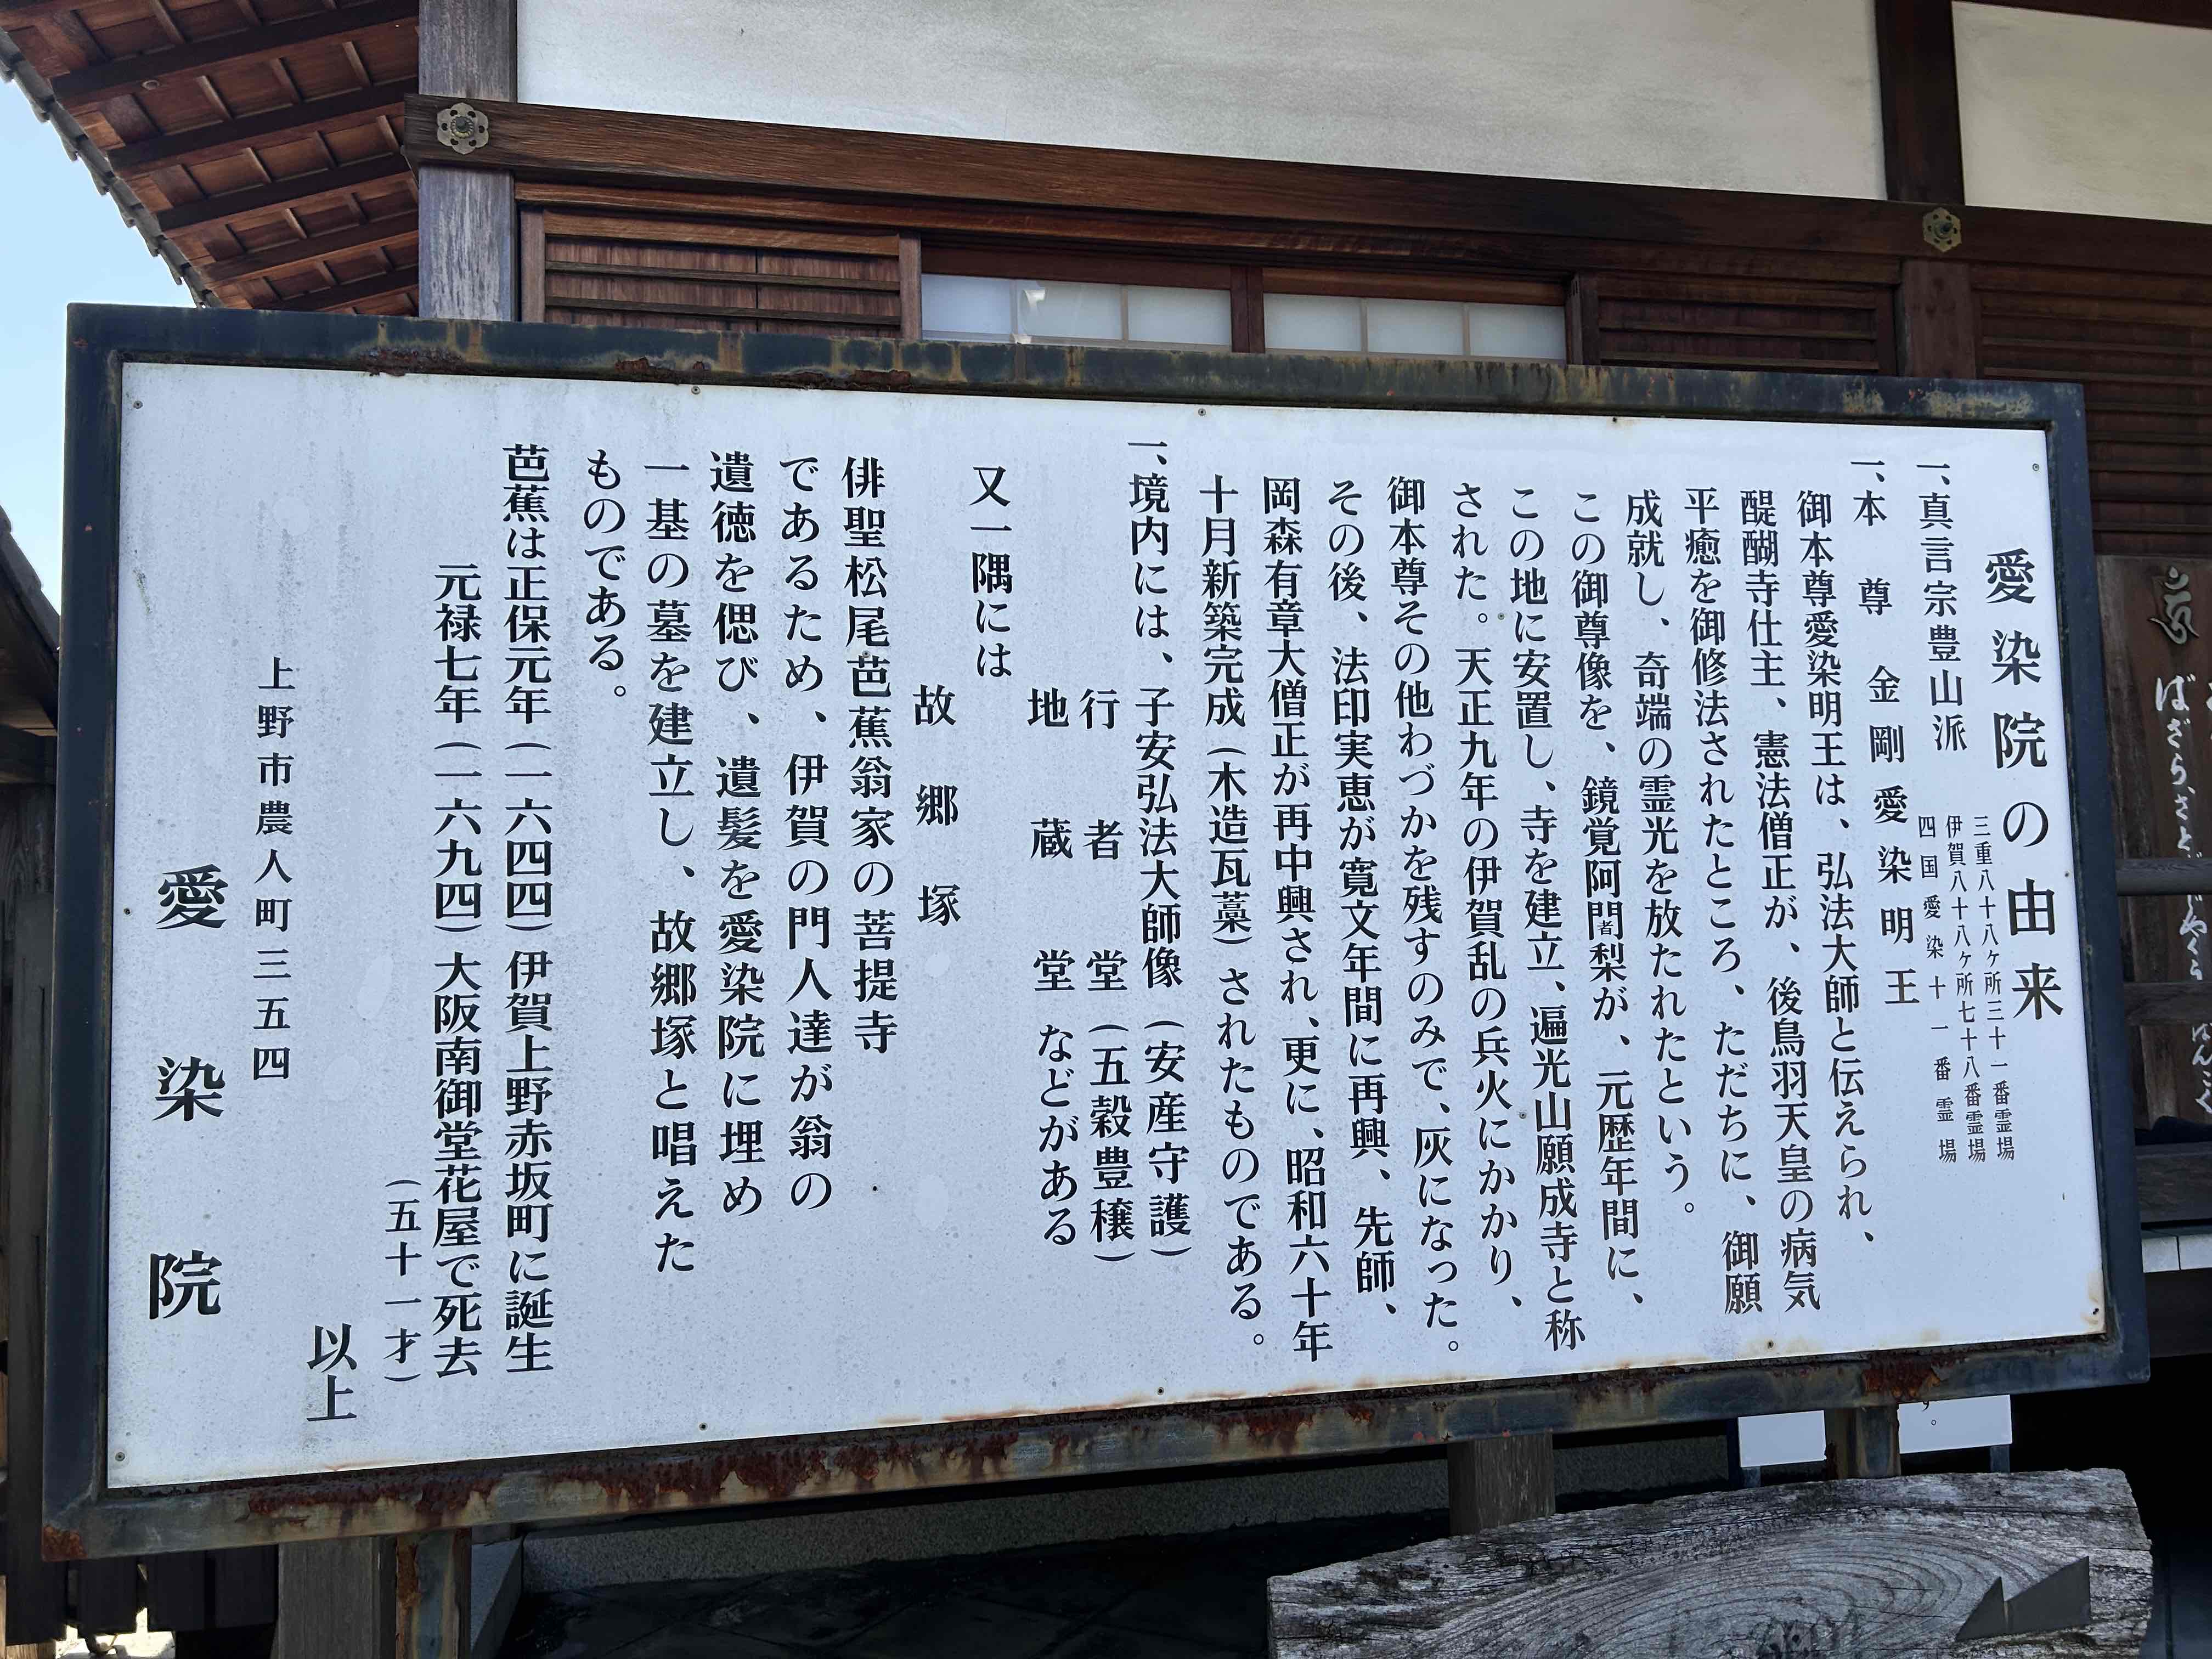 愛染院の由来
一、真言宗豊山派
三重八十八ヶ所三十一番霊場
伊賀八十八ヶ所七十八番霊場
四国愛染十一番霊場
一、本尊 金剛愛染明王
御本尊愛染明王は、弘法大師と伝えられ、
醍醐寺仕主、憲法僧正が、後鳥羽天皇の病気
平癒を御修法されたところ、ただちに、御願
成就し、奇端の霊光を放たれたという。
この御尊像を、鏡覚阿闍梨が、元歴年間に、
この地に安置し、寺を建立、遍光山願成寺と称
された。天正九年の伊賀乱の兵火にかかり、
御本尊その他わづかを残すのみで、灰になった。
その後、法印実恵が寛文年間に再興、先師、
岡森有章大僧正が再中興され、更に、昭和六十年
十月新築完成（木造瓦藁）されたものである。
一、境内には、子安弘法大師像（安産守護）
行者堂（五穀豊穣）
地蔵堂などがある
又一隅には
故郷塚
俳聖松尾芭蕉翁家の菩提寺
であるため、伊賀の門人達が翁の
遺徳を偲び、遺髪を愛染院に埋め
一基の墓を建立し、故郷塚と唱えた
ものである。
芭蕉は正保元年（一六四四）伊賀上野赤坂町に誕生
元禄七年（一六九四）大阪南御堂花屋で死去
（五十一才）
以上
上野市農人町三五四
愛染院